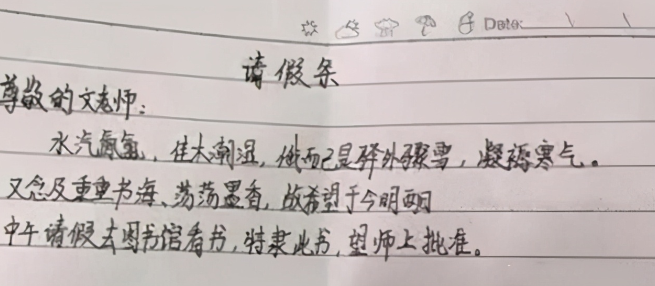 Date: \ \
请假条
尊敬的文老师：
水汽氤氲，佳木潮湿，俄而已是驿外骤雪，凝寒气。
又念及重重书海、荡荡墨香，故希望于今明两日
中午请假去图书馆看书，特隶此书，望师上批准。